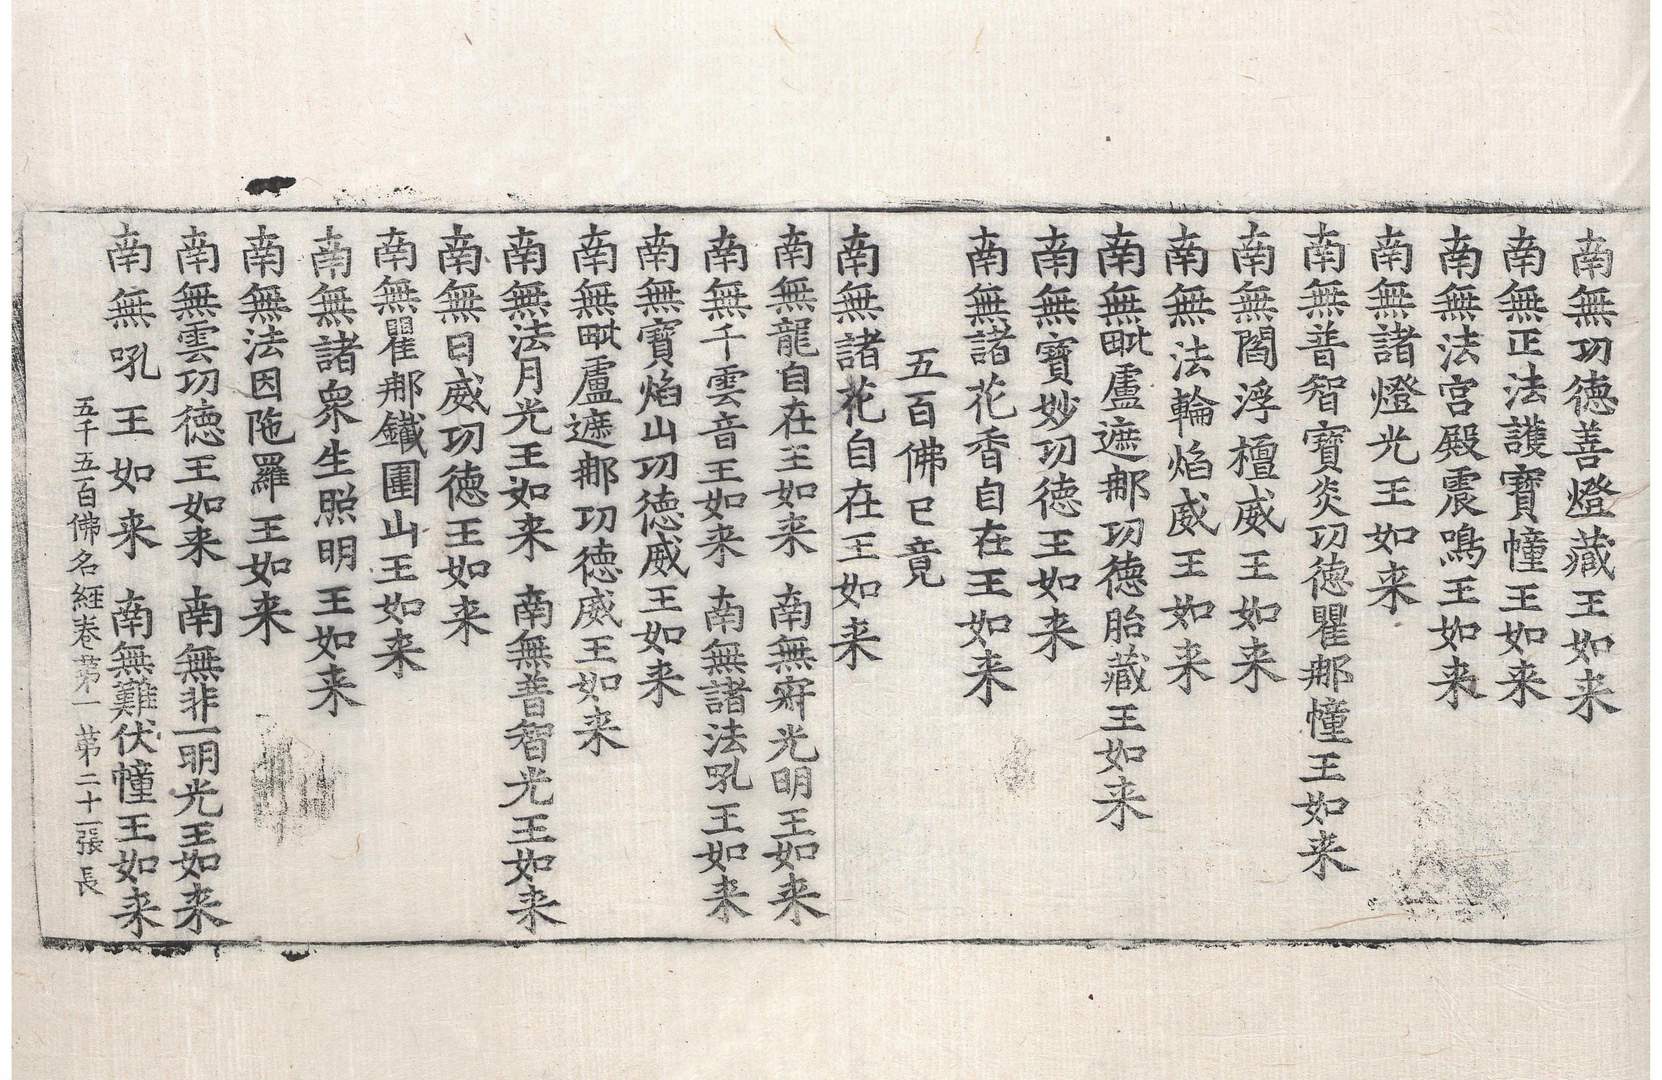 南無功德善燈藏王如来
南無正法護寶幢王如来
南無法宮殿震鳴王如来
南無諸燈光王如来
南無普智寶炎功德瞿那幢王如来
南無閻浮檀威王如来
南無法輪焰威王如来
南無毗盧遮那功德胎藏王如来
南無寶妙功德王如来
南無諸花香自在王如来
五百佛已竟
南無諸花自在王如来
南無龍自在王如来 南無寂光明王如来
南無千雲音王如来 南無諸法吼王如来
南無寶焰山功德威王如来
南無毗盧遮那功德威王如来
南無法月光王如来 南無普智光王如来
南無日威功德王如来
南無瞿那鐵圍山王如来
南無諸衆生照明王如来
南無法因陁羅王如来
南無雲功德王如来 南無非一明光王如来
南無吼王如来 南無難伏幢王如来
五千五百佛名經卷苐一 苐二十一張 長